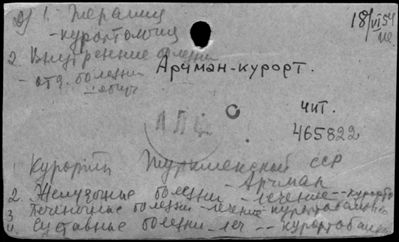 д) 1. Терапия
18/VI 54
- курортология
2. Внутренние болезни
- отд. болезни
Арчман-курорт.
чит.
465822
1. Курорты Туркменской ССР
- Арчман
2. Желудочные болезни - лечение - - курорто
3. Печеночные болезни - лечение - курортобальнео
4. Суставные болезни - леч - - курортобальн